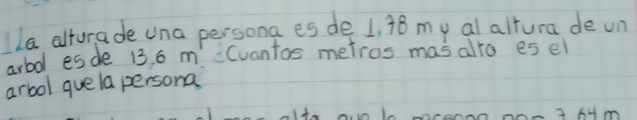 1 La altura de una persona es de 1,78 m y al altura de un
arbol es de 13,6 m ¿Cuantos metros mas alto es el
arbol que la persona